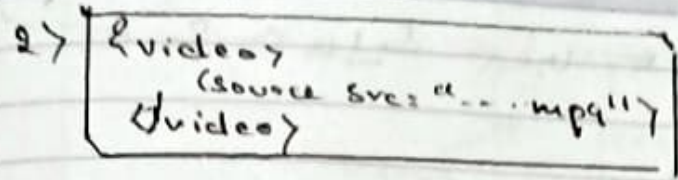 2> <video>
<source src="....mp4">
</video>